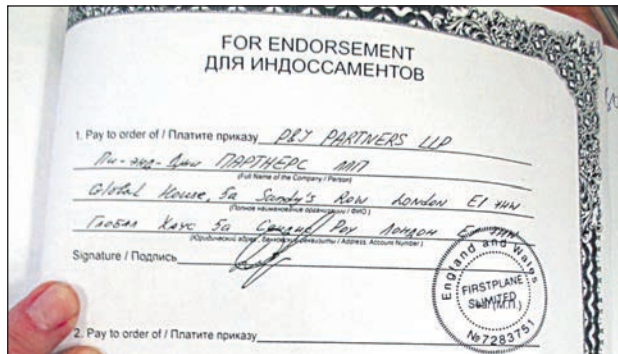 FOR ENDORSEMENT
ДЛЯ ИНДОССАМЕНТОВ
1. Pay to order of / Платите приказу P&J PARTNERS LLP
Пи-энд-Джи ПАРТНЕРС ЛЛП
(Full Name of the Company / Person)
Global House, 5a Sandy's Row London E1 7HW
(Полное наименование организации / ФИО)
Глобал Хаус 5a Сандис Роу Лондон E1 7HW
(Юридический адрес, банковские реквизиты / Address, Account Number)
Signature / Подпись
England and Wales
FIRSTPLANE
LIMITED
№7283751
2. Pay to order of / Платите приказу